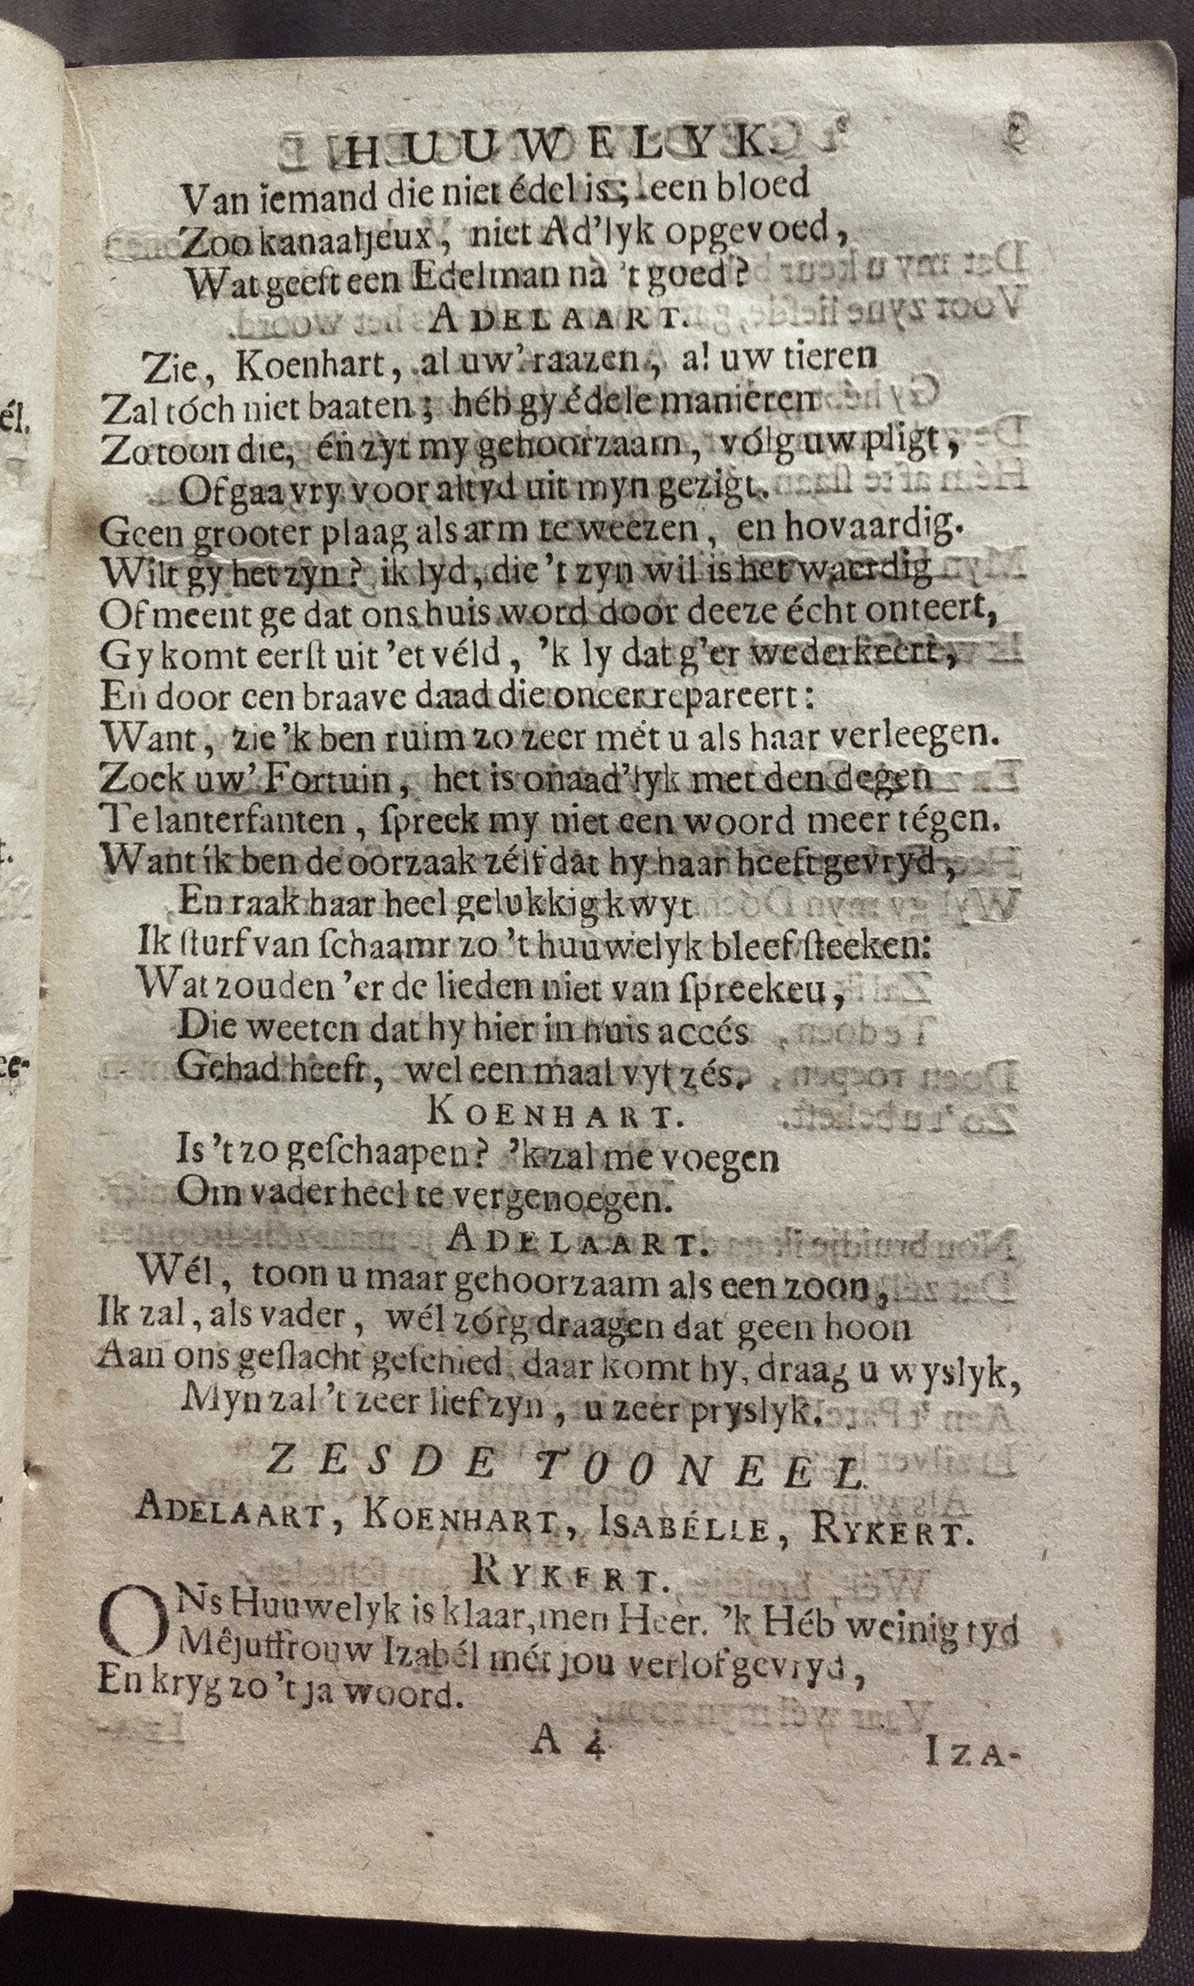 HUUWELYK. 9
Van iemand die niet édel is; een bloed
Zoo kanaaljeux, niet Ad'lyk opgevoed,
Wat geeft een Edelman na 't goed?
ADELAART.
Zie, Koenhart, al uw' raazen, al uw tieren
Zal tóch niet baaten; héb gy édele manieren
Zo toon die, én zyt my gehoorzaam, vólg uw pligt,
Of gaa vry voor altyd uit myn gezigt.
Geen grooter plaag als arm te weezen, en hovaardig.
Wilt gy het zyn? ik lyd, die 't zyn wil is het waerdig
Of meent ge dat ons huis word door deeze écht onteert,
Gy komt eerst uit 'et véld, 'k ly dat g'er wederkeert,
En door een braave daad die oneer repareert:
Want, zie 'k ben ruim zo zeer mét u als haar verleegen.
Zoek uw' Fortuin, het is onaad'lyk met den degen
Te lanterfanten, ſpreek my niet een woord meer tégen.
Want ik ben de oorzaak zélf dat hy haar heeft gevryd,
En raak haar heel gelukkig kwyt
Ik ſturf van ſchaamr zo 't huuwelyk bleef ſteeken:
Wat zouden 'er de lieden niet van ſpreekeu,
Die weeten dat hy hier in huis accés
Gehad heeft, wel een maal vyf zés.
KOENHART.
Is 't zo geſchaapen? 'k zal me voegen
Om vader heel te vergenoegen.
ADELAART.
Wél, toon u maar gehoorzaam als een zoon,
Ik zal, als vader, wél zórg draagen dat geen hoon
Aan ons geſlacht geſchied, daar komt hy, draag u wyslyk,
Myn zal 't zeer lief zyn, u zeer pryslyk.
ZESDE TOONEEL
ADELAART, KOENHART, ISABÉLLE, RYKERT.
RYKERT.
ONs Huuwelyk is klaar, men Heer. 'k Héb weinig tyd
Mêjuffrouw Izabél mét jou verlof gevryd,
En kryg zo 't ja woord.
A 4 IZA-